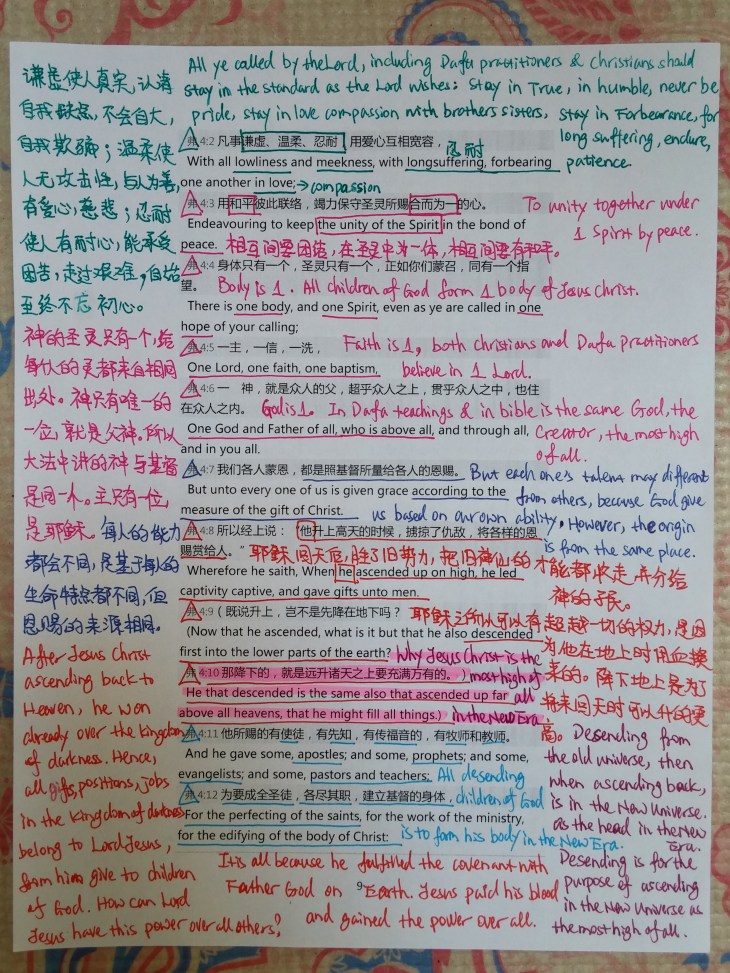 All ye called by the Lord, including Dafa practitioners & Christians should
stay in the standard as the Lord wishes: Stay in True, in humble, never be
pride, stay in love compassion with brothers sisters, stay in Forbearance, for
long suffering, endure,
patience.
谦虚使人真实,认清
自我缺点,不会自大,
自我欺骗;温柔使
人无攻击性,与人为善,
有爱心,慈悲;忍耐
使人有耐心,能承受
困苦,走过艰难,自始
至终不忘初心。
弗 4:2 凡事谦虚、温柔、忍耐,用爱心互相宽容,
忍耐
With all lowliness and meekness, with longsuffering, forbearing
one another in love;→compassion
弗 4:3 用和平彼此联络,竭力保守圣灵所赐合而为一的心。
Endeavouring to keep the unity of the Spirit in the bond of
peace. 相互间要团结,在圣灵中为一体,相互间要有和平。
To unity together under
1 Spirit by peace.
弗 4:4 身体只有一个,圣灵只有一个,正如你们蒙召,同有一个指
望。 Body is 1. All children of God form 1 body of Jesus Christ.
There is one body, and one Spirit, even as ye are called in one
hope of your calling;
弗 4:5 一主,一信,一洗, Faith is 1, both Christians and Dafa Practitioners
One Lord, one faith, one baptism, believe in 1 Lord.
弗 4:6 一 神,就是众人的父,超乎众人之上,贯乎众人之中,也住
在众人之内。 God is 1. In Dafa teachings & in bible is the same God, the
One God and Father of all, who is above all, and through all, Creator, the most high
and in you all. of all.
神的圣灵只有一个,给
每位的灵都来自相同
出处。神只有唯一的
一位,就是父神。所以
大法中讲的神与基督
是同一个。主只有一位,
是耶稣。每人的能力
都会不同,是基于每人的
生命特点都不同,但
恩赐的来源相同。
弗 4:7 我们各人蒙恩,都是照基督所量给各人的恩赐。 But each one's talent may different
But unto every one of us is given grace according to the from others, because God give
measure of the gift of Christ. us based on our own ability. However, the origin
is from the same place.
弗 4:8 所以经上说:“他升上高天的时候,掳掠了仇敌,将各样的恩
赐赏给人。” 耶稣回天后,胜了旧势力,把旧神仙的才能都收走,并分给
神的子民。
Wherefore he saith, When he ascended up on high, he led
captivity captive, and gave gifts unto men.
弗 4:9 (既说升上,岂不是先降在地下吗?
(Now that he ascended, what is it but that he also descended
first into the lower parts of the earth? Why Jesus Christ is the
弗 4:10 那降下的,就是远升诸天之上要充满万有的。) most high of
He that descended is the same also that ascended up far all
above all heavens, that he might fill all things.) in the New Era.
耶稣之所以可以有超越一切的权力,是因
为他在地上时用血换
来的。降下地上是为了
将来回天时可以升的更
高。Desending from
the old universe, then
when ascending back,
is in the New Universe.
as the head in the New
Era.
Desending is for the
purpose of ascending
in the New Universe as
the most high of all.
弗 4:11 他所赐的有使徒,有先知,有传福音的,有牧师和教师。
And he gave some, apostles; and some, prophets; and some,
evangelists; and some, pastors and teachers; All desending
弗 4:12 为要成全圣徒,各尽其职,建立基督的身体, children of God
For the perfecting of the saints, for the work of the ministry,
for the edifying of the body of Christ: is to form his body in the New Era.
After Jesus Christ
ascending back to
Heaven, he won
already over the kingdom
of darkness. Hence,
all gifts, positions, jobs
in the kingdom of darkness
belong to Lord Jesus,
from him give to children
of God. How can Lord
Jesus have this power over all others?
It is all because he fulfilled the covenant with
Father God on Earth. Jesus paid his blood
and gained the power over all.
9